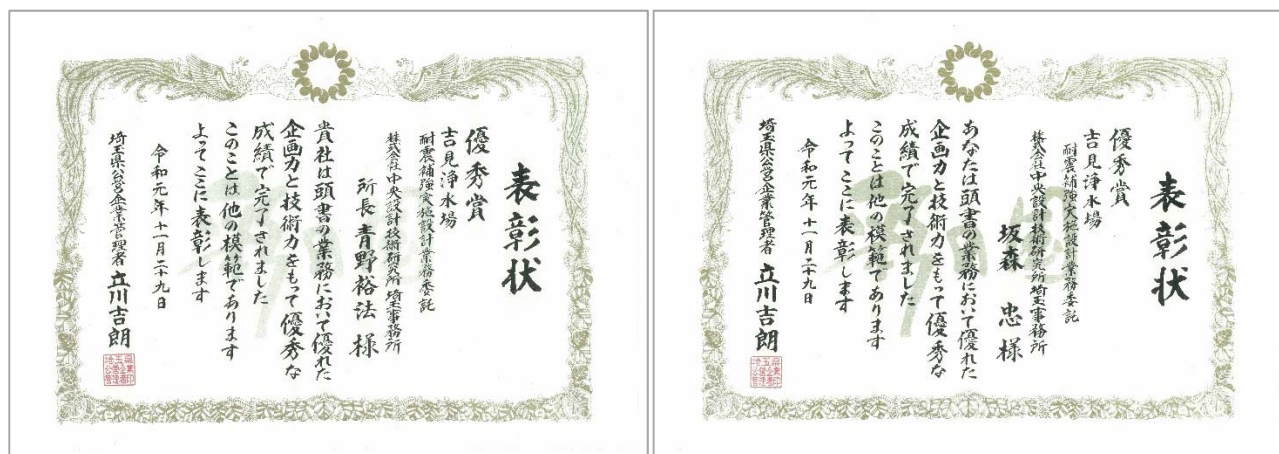 表彰状
優秀賞
吉見浄水場
耐震補強実施設計業務委託
株式会社中央設計技術研究所埼玉事務所
所長青野裕法様
貴社は頭書の業務において優れた
企画力と技術力をもって優秀な
成績で完了されました
このことは他の模範であります
よってここに表彰します
令和元年十一月二十九日
埼玉県公営企業管理者 立川吉朗
表彰状
優秀賞
吉見浄水場
耐震補強実施設計業務委託
株式会社中央設計技術研究所埼玉事務所
坂森 忠様
あなたは頭書の業務において優れた
企画力と技術力をもって優秀な
成績で完了されました
このことは他の模範であります
よってここに表彰します
令和元年十一月二十九日
埼玉県公営企業管理者 立川吉朗